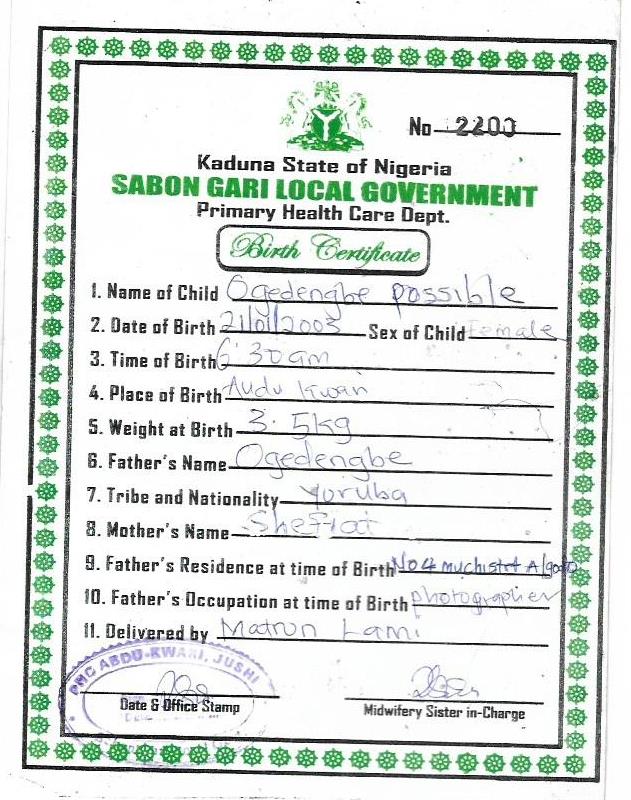 No 2200
Kaduna State of Nigeria
SABON GARI LOCAL GOVERNMENT
Primary Health Care Dept.
Birth Certificate
1. Name of Child Ogedengbe possible
2. Date of Birth 21/01/2003 Sex of Child Female
3. Time of Birth 6:30am
4. Place of Birth Audu Kwari
5. Weight at Birth 3.5kg
6. Father's Name Ogedengbe
7. Tribe and Nationality Yoruba
8. Mother's Name Shefiat
9. Father's Residence at time of Birth No 4 muchistrt
10. Father's Occupation at time of Birth photographer
11. Delivered by Matron Lami
PHC ABDU-KWARI, JUSHI
Date & Office Stamp
Midwifery Sister in-Charge